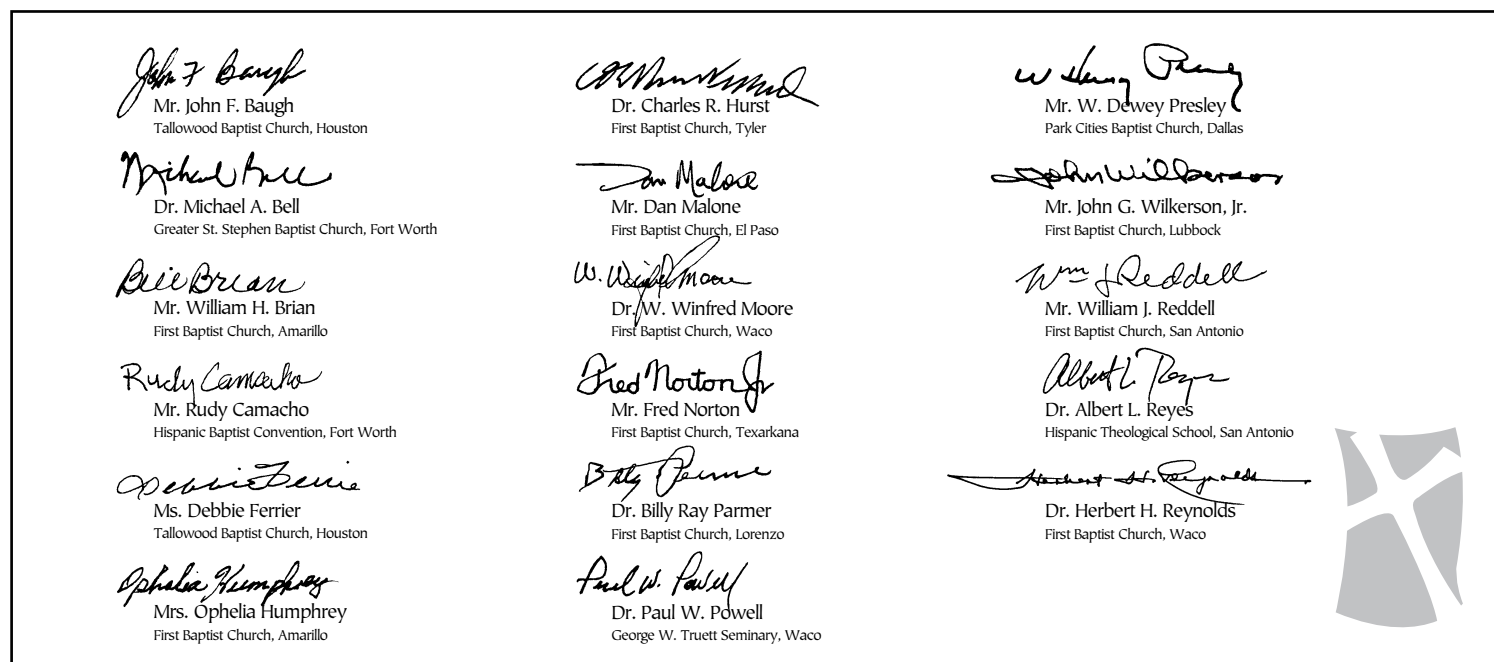 John F Baugh
Mr. John F. Baugh
Tallowood Baptist Church, Houston
Michael Bell
Dr. Michael A. Bell
Greater St. Stephen Baptist Church, Fort Worth
Bill Brian
Mr. William H. Brian
First Baptist Church, Amarillo
Rudy Camacho
Mr. Rudy Camacho
Hispanic Baptist Convention, Fort Worth
Debbie Ferrier
Ms. Debbie Ferrier
Tallowood Baptist Church, Houston
Ophelia Humphrey
Mrs. Ophelia Humphrey
First Baptist Church, Amarillo
Dr. Charles R. Hurst
First Baptist Church, Tyler
Dan Malone
Mr. Dan Malone
First Baptist Church, El Paso
W. Winfred Moore
Dr. W. Winfred Moore
First Baptist Church, Waco
Fred Norton Jr
Mr. Fred Norton
First Baptist Church, Texarkana
Billy
Dr. Billy Ray Parmer
First Baptist Church, Lorenzo
Paul W. Powell
Dr. Paul W. Powell
George W. Truett Seminary, Waco
W Dewey Presley
Mr. W. Dewey Presley
Park Cities Baptist Church, Dallas
John Wilkerson
Mr. John G. Wilkerson, Jr.
First Baptist Church, Lubbock
Wm J Reddell
Mr. William J. Reddell
First Baptist Church, San Antonio
Albert L. Reyes
Dr. Albert L. Reyes
Hispanic Theological School, San Antonio
Herbert H. Reynolds
Dr. Herbert H. Reynolds
First Baptist Church, Waco